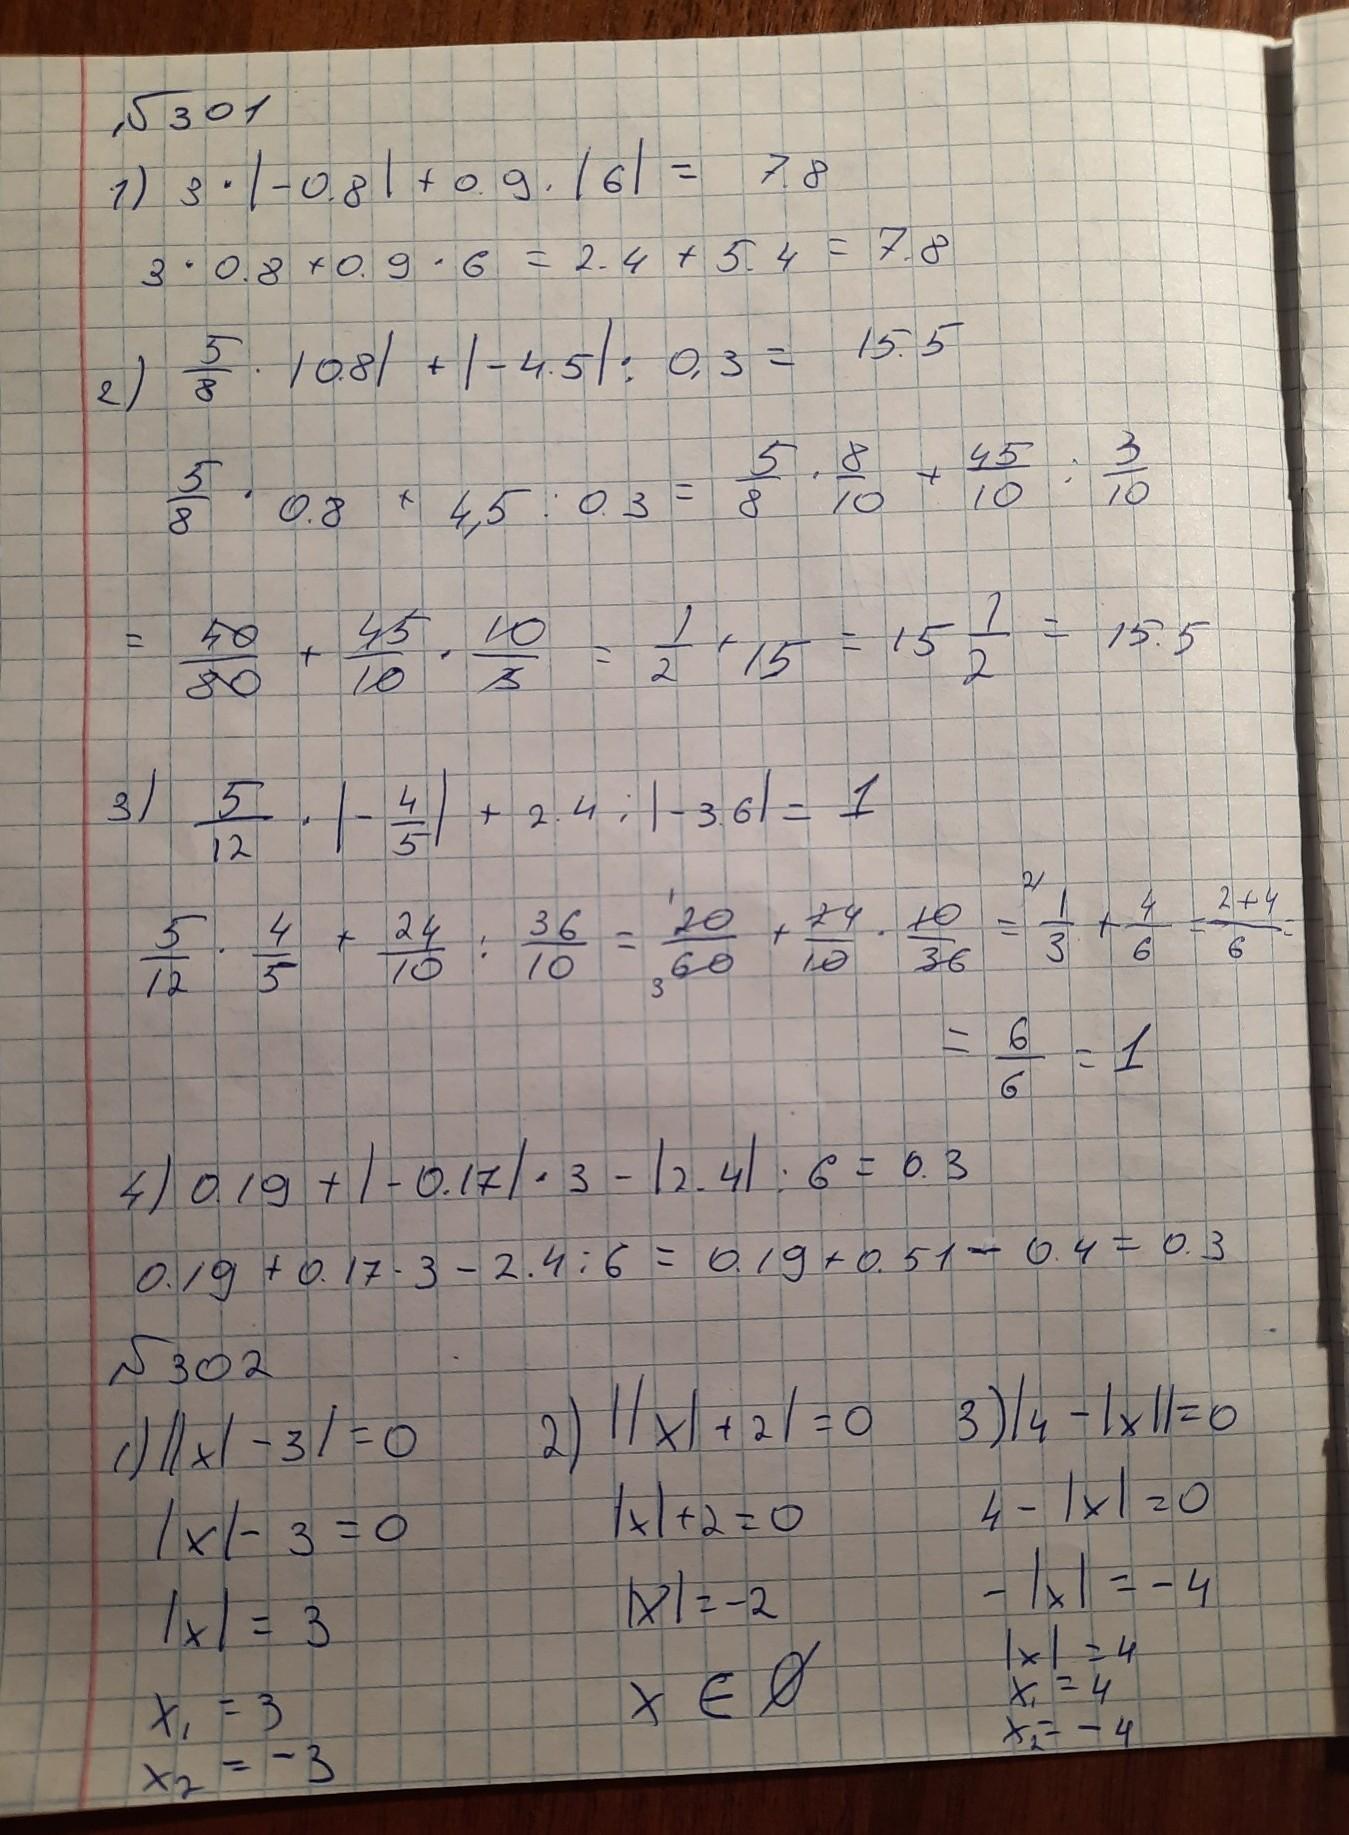 №301
1) 3 · |-0.8| + 0.9 · |6| = 7.8
3 · 0.8 + 0.9 · 6 = 2.4 + 5.4 = 7.8
2) 5/8 · |0.8| + |-4.5| : 0,3 = 15.5
5/8 · 0.8 + 4,5 : 0.3 = 5/8 · 8/10 + 45/10 : 3/10
= 40/80 + 45/10 · 10/3 = 1/2 + 15 = 15 1/2 = 15.5
3) 5/12 · |-4/5| + 2.4 : |-3.6| = 1
5/12 · 4/5 + 24/10 : 36/10 = 1 20/60 3 + 24/10 · 10/36 = 2/ 1/3 + 4/6 = 2+4/6 =
= 6/6 = 1
4) 0.19 + |-0.17| · 3 - |2.4| : 6 = 0.3
0.19 + 0.17 · 3 - 2.4 : 6 = 0.19 + 0.51 - 0.4 = 0.3
№302
1) ||x| - 3| = 0
|x| - 3 = 0
|x| = 3
x₁ = 3
x₂ = -3
2) ||x| + 2| = 0
|x| + 2 = 0
|x| = -2
x ∈ Ø
3) |4 - |x|| = 0
4 - |x| = 0
- |x| = -4
|x| = 4
x₁ = 4
x₂ = -4